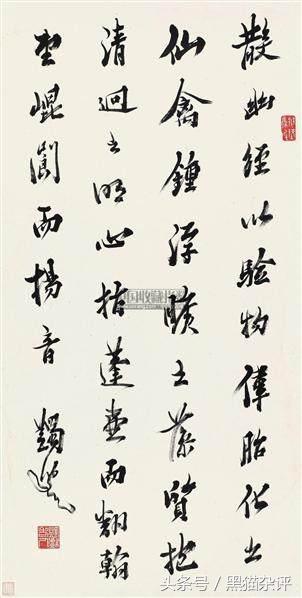 散幽經以驗物偉胎化之
仙禽鍾浮曠之藻質抱
清迥之明心指蓬壺而翻翰
望崐閬而揚音 蠲叟
头条号 / 黑猫杂评